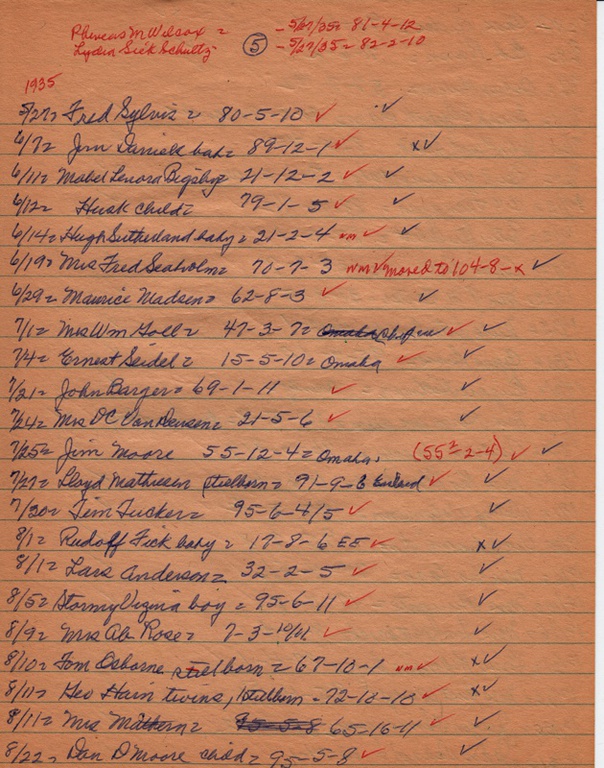 Phineas M Wilcox = - 5/27/35 = 81-4-12
Lydia Sick Schultz - 5/27/35 = 82-2-10
5
1935
5/27 = Fred Sylvis = 80-5-10 ✓ ✓
6/7 = Jim baby = 89-12-1 ✓ x✓
6/11 = Mabel Lenora Bigsby = 21-12-2 ✓ ✓
6/12 = Husk child = 79-1-5 ✓ ✓
6/14 = Hugh Sutherland baby = 21-2-4 nm ✓ ✓
6/19 = Mrs Fred Seaholm = 70-7-3 nm ✓ moved to 104-8-x ✓
6/29 = Maurice Madsen = 62-8-3 ✓ ✓
7/1 = Mrs Wm Goll = 47-3-7 = Omaha ✓ ✓
7/4 = Ernest Seidel = 15-5-10 = Omaha ✓ ✓
7/21 = John Barger = 69-1-11 ✓ ✓
7/24 = Mrs DC Van Deusen = 21-5-6 ✓ ✓
7/25 = Jim Moore 55-12-4 = Omaha. (55²-2-4) ✓ ✓
7/27 = Lloyd Mathiesen stielborn = 91-9-6 ✓ ✓
7/30 = Tim Tucker = 95-6-4/5 ✓ ✓
8/1 = Rudolf Fick baby = 17-8-6 EE ✓ x✓
8/1 = Lars Anderson = 32-2-5 ✓ ✓
8/5 = Stormy Virginia boy = 95-6-11 ✓ ✓
8/9 = Mrs Ab Rose = 7-3-10/11 ✓ ✓
8/10 = Tom Osborne stielborn = 67-10-1 nm ✓ x✓
8/11 = Geo Hain twins, stielborn - 72-10-10 ✓ x✓
8/11 = Mrs = 95-5-8 65-16-11 ✓ ✓
8/22 = Dan D Moore child = 95-5-8 ✓ ✓